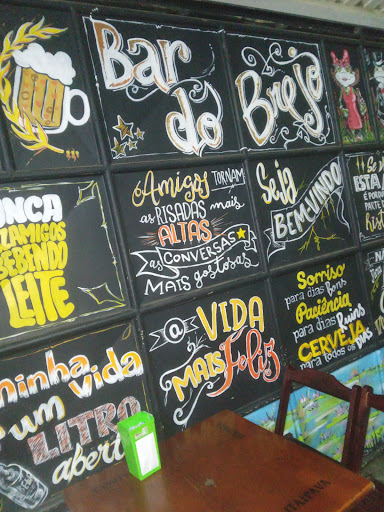 Bar
do
Brejo
Amigos TORNAM
as RISADAS mais
ALTAS
as CONVERSAS
MAIS gostosas
Seja
BEMVINDO
Se
ESTÁ
PARTE
AMIGOS
BEBENDO
LEITE
a VIDA
MAIS feliz
Sorriso
para dias bons
Paciência
para dias Ruins
CERVEJA
para todos os dias
minha vida
um
LITRO
aberto
ITAIPAVA